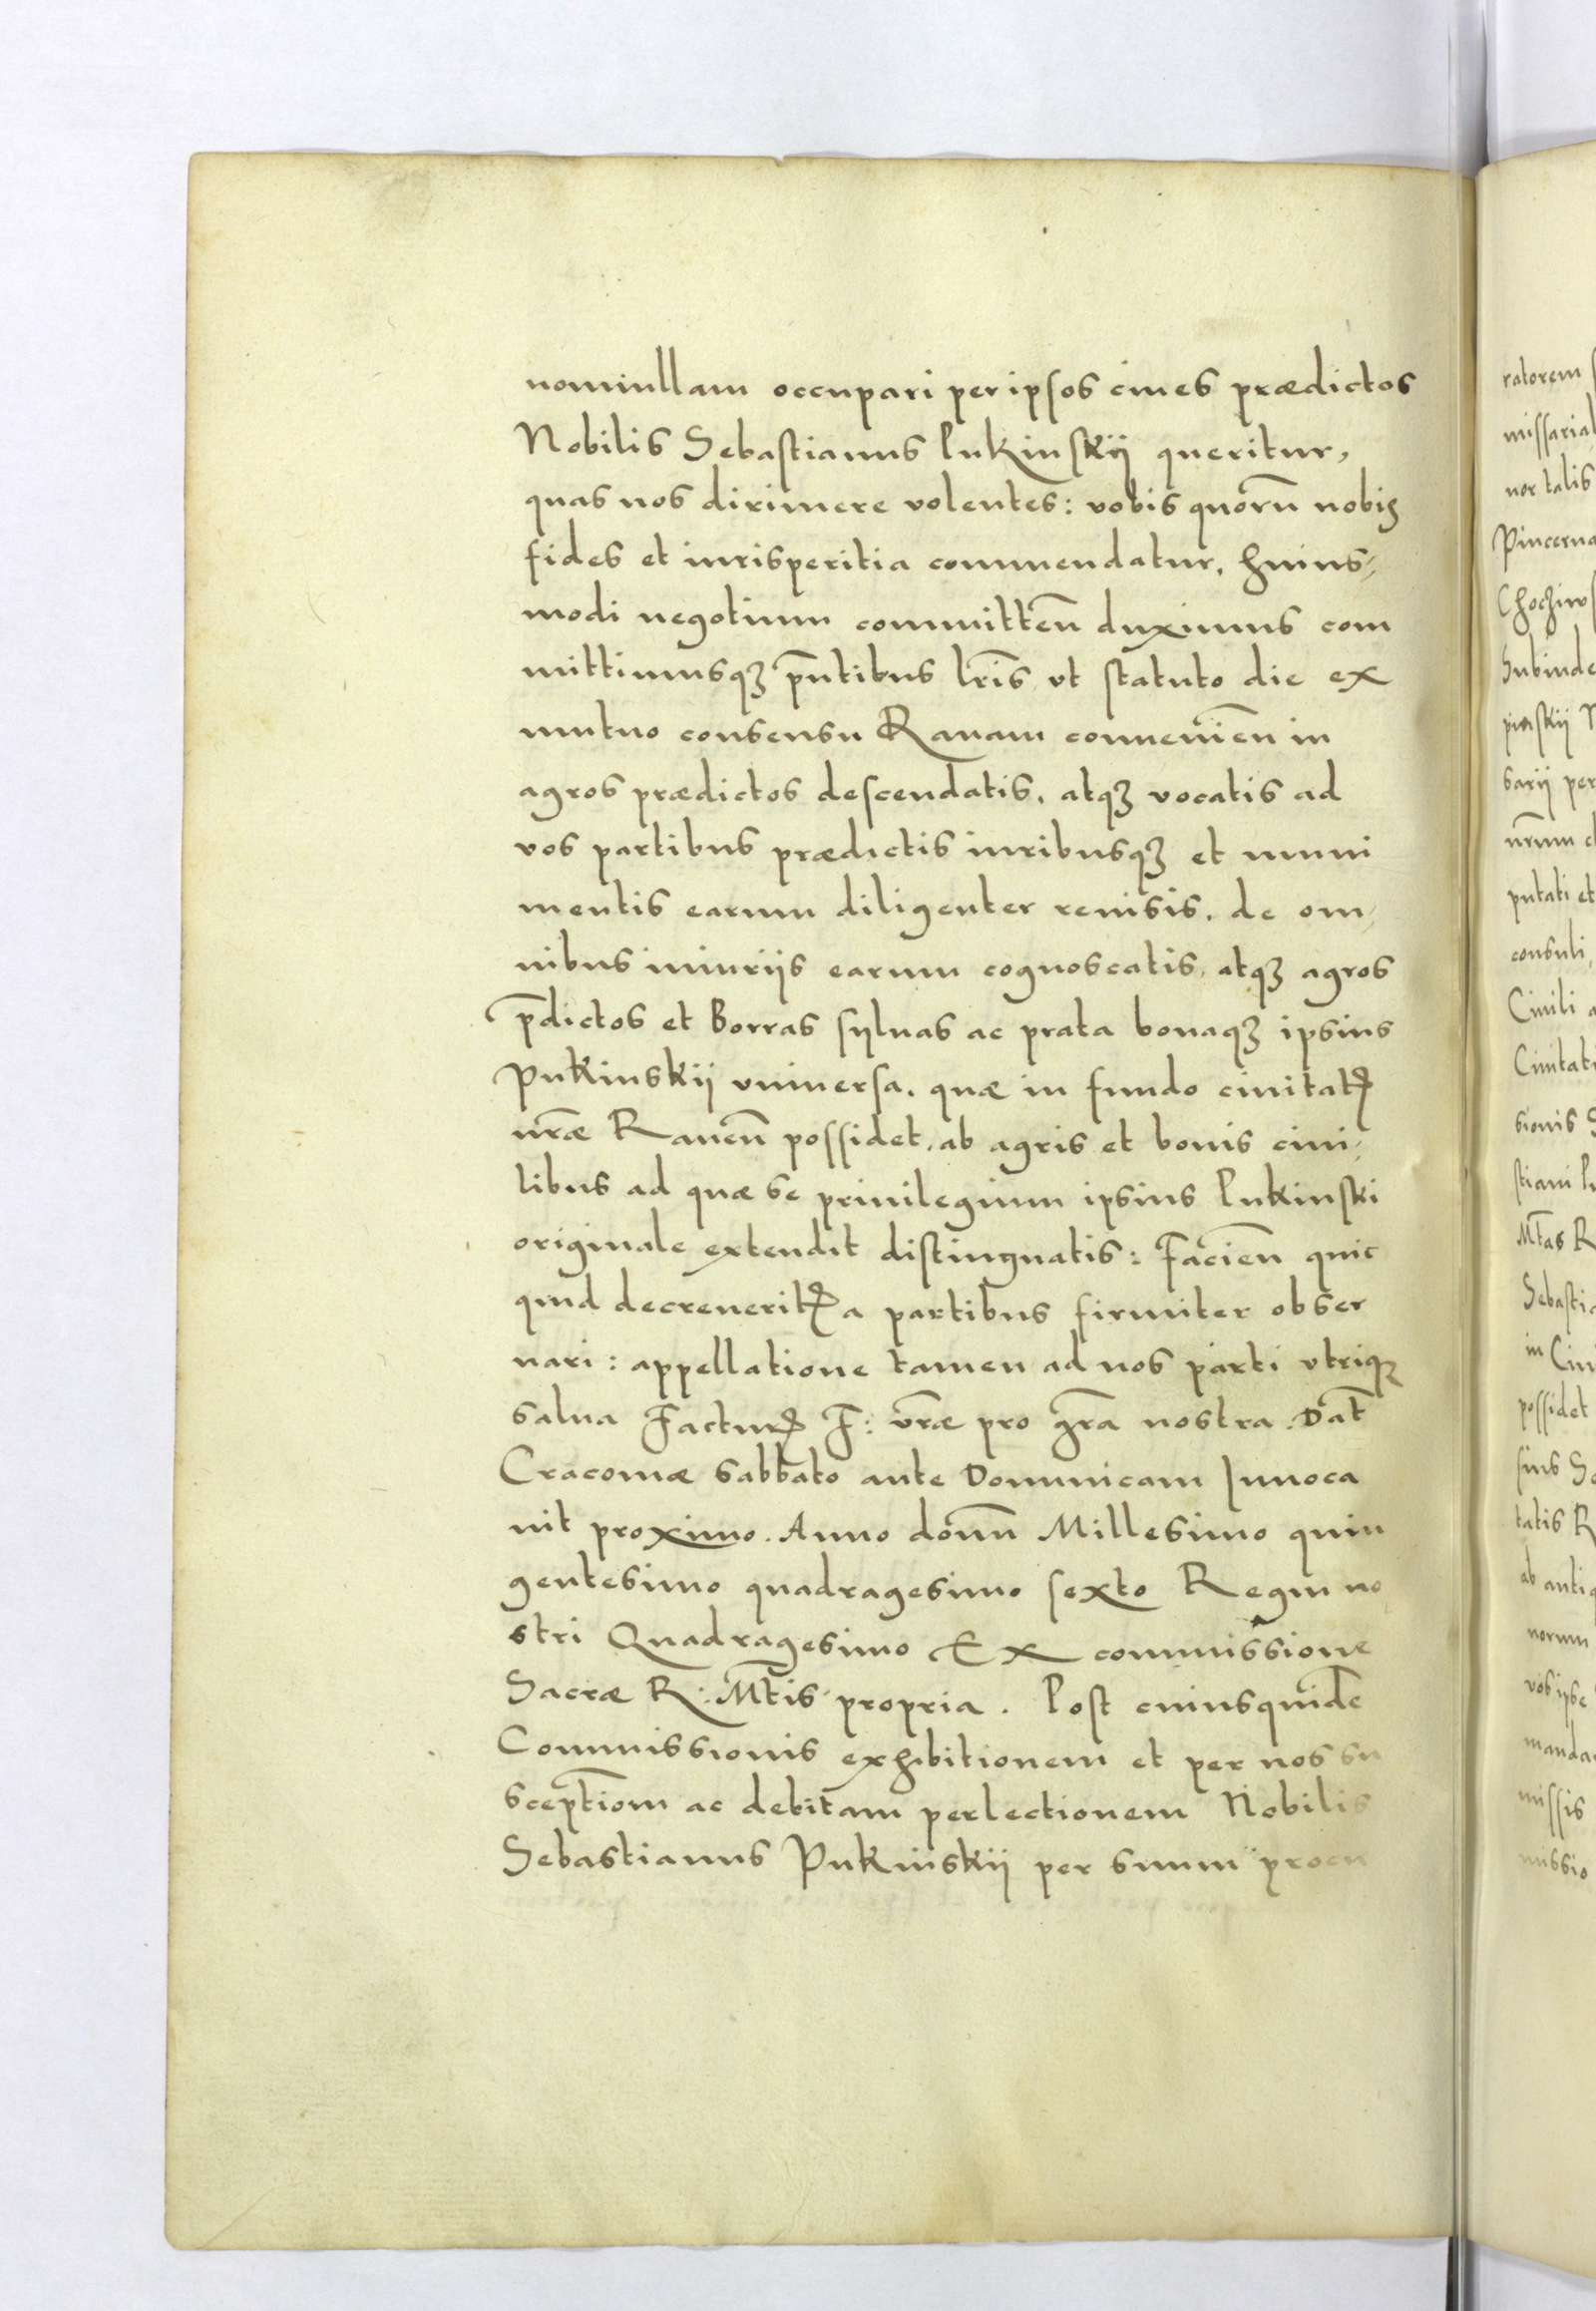 nonnullam occupari per ipsos ciues prædictos
Nobilis Sebastianus Pukinskij queritur,
quas nos dirimere volentes: vobis quorū nobis
fides et iurisperitia commendatur, huius⸗
modi negotium committeñ duximus com
mittimusqꝫ pñtibus lr̃is vt statuto die ex
mutuo consensu Rauam conuenieñ in
agros prædictos descendatis, atqꝫ vocatis ad
vos partibus prædictis iuribusqꝫ et muni
mentis earum diligenter reuisis, de om⸗
nibus iniurijs earum cognoscatis, atqꝫ agros
p̄dictos et Borras syluas ac prata bonaqꝫ ipsius
Pukinskij vniuersa, quæ in fundo ciuitatꝭ
nr̃æ Raueñ possidet, ab agris et bonis ciui⸗
libus ad quæ se priuilegium ipsius Pukinski
originale extendit distinguatis: Facieñ quic
quid decreueritꝭ a partibus firmiter obser
uari: appellatione tamen ad nos parti vtriqꝫ
salua Facturꝭ F: vr̃æ pro gr̃a nostra. Dat̃
Cracouiæ sabbato ante Dominicam Inuoca
uit proximo. Anno domñ Millesimo quin
gentesimo quadragesimo sexto Regni no
stri Quadragesimo Ex commissione
Sacræ R: Mt̃is propria. Post cuiusquidē
Commissionis exhibitionem et per nos su
sceptiom̄ ac debitam perlectionem Nobilis
Sebastianus Pukinskij per suum procu
ratorem
missarial
nor talis
Pincerna
Subinde
pinskij N
sarij per
nr̃um
putati et
consuli,
Ciuili a
Ciuitati
sionis S
stiani Pu
Mt̃as R
Sebastia
in Ciui
possidet
sius Se
tatis R
ab antiq
norum
vos ipse
manda
missis
missio